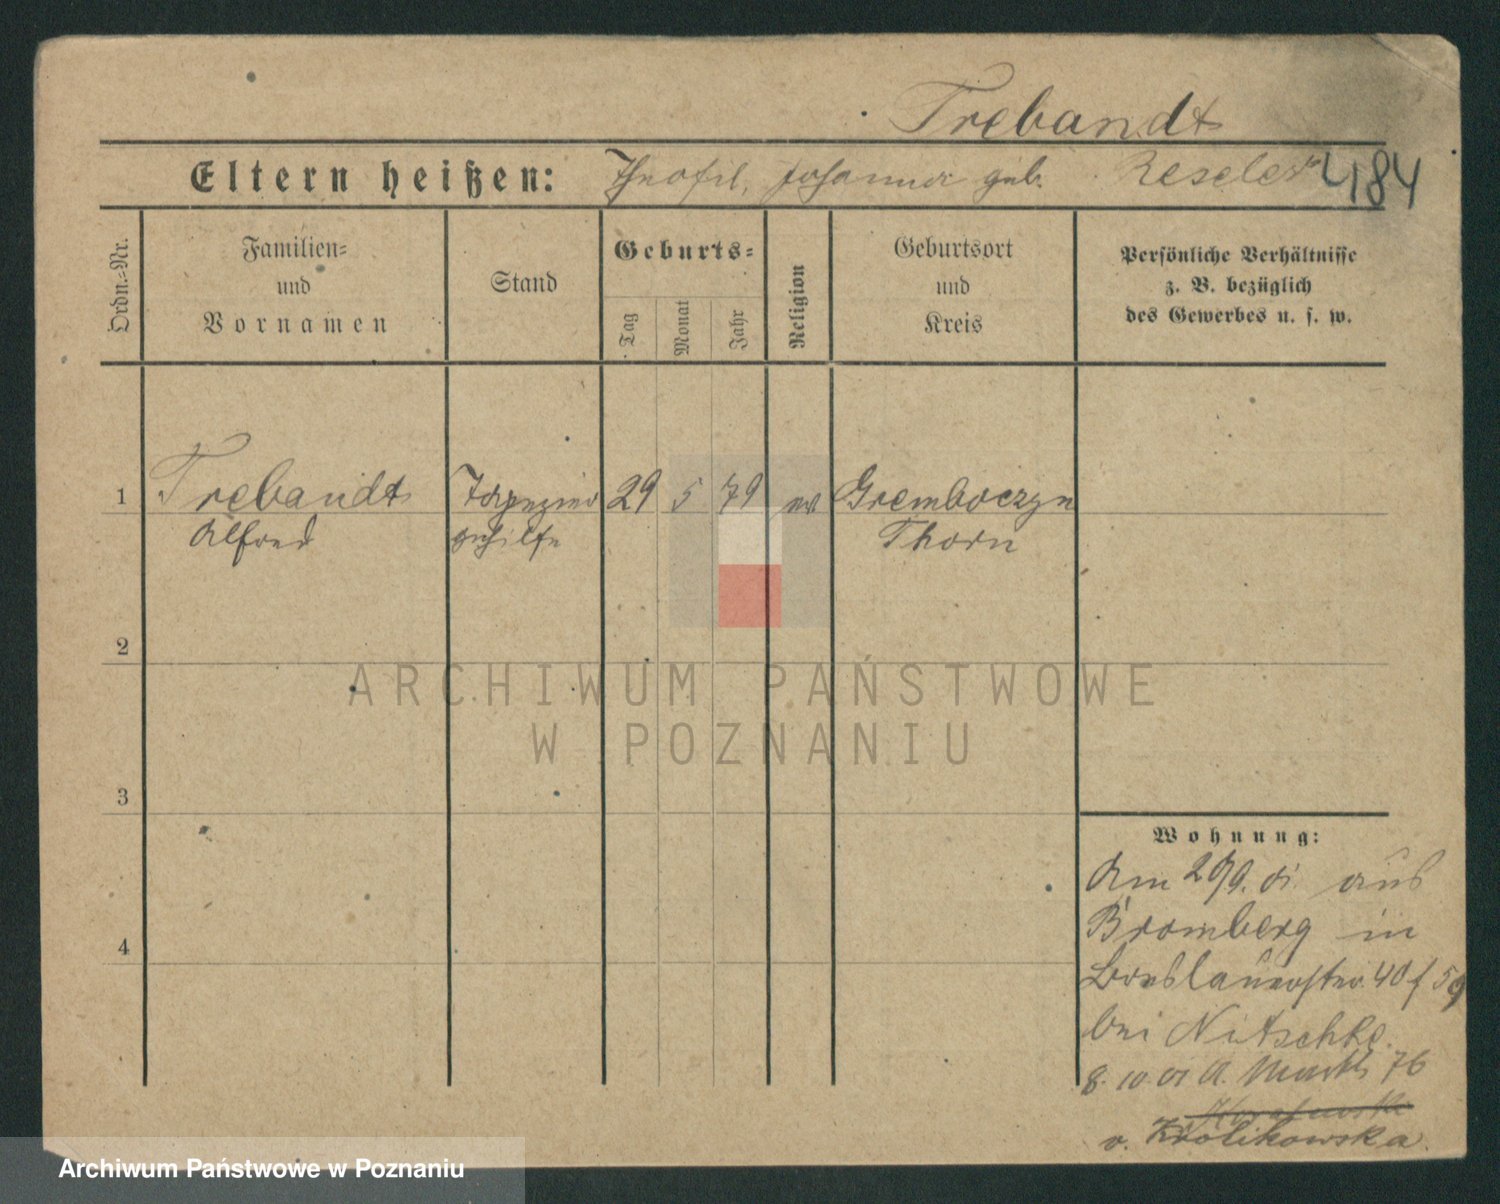 Trebandt
Eltern heißen: Theofil, Johanna geb. 4184
Ordn.-Nr.
Familien-
und
Vornamen
Stand
Geburts-
Tag
Monat
Jahr
Religion
Geburtsort
und
Kreis
Persönliche Verhältnisse
z. B. bezüglich
des Gewerbes u. s. w.
1 Trebandt Tapezier 29 5 79 ev Gremboczyn
Alfred gehilfe Thorn
2
3
4
Wohnung:
Am 29/9. 01. aus
Bromberg in
Breslauerstr. 40
bei Nitschke.
8. 10. 01 A. Markt 76
v. Krolikowska
ARCHIWUM PAŃSTWOWE
W POZNANIU
Archiwum Państwowe w Poznaniu